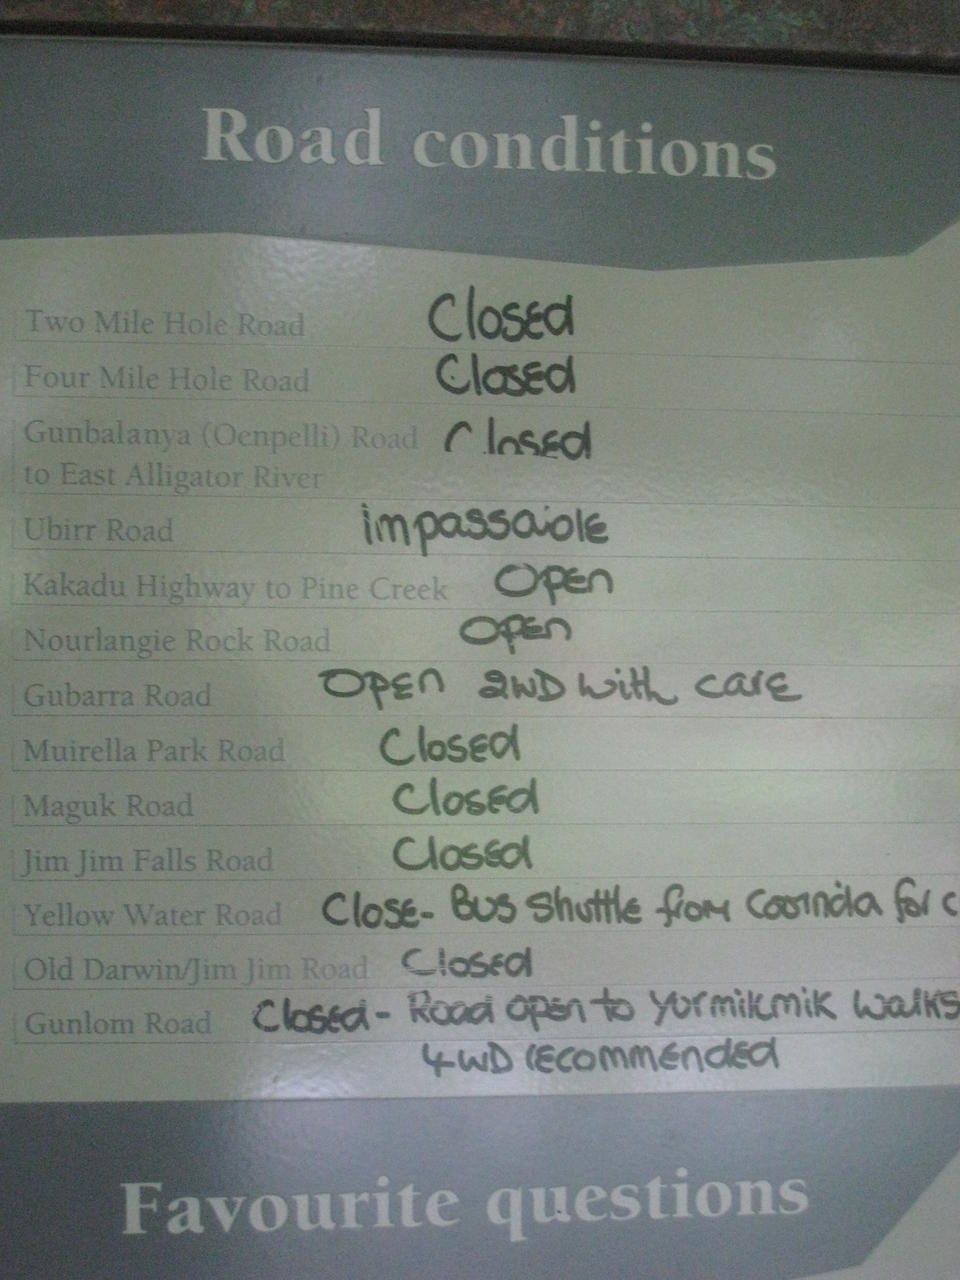 Road conditions
Two Mile Hole Road Closed
Four Mile Hole Road Closed
Gunbalanya (Oenpelli) Road Closed
to East Alligator River
Ubirr Road impassable
Kakadu Highway to Pine Creek Open
Nourlangie Rock Road Open
Gubarra Road Open 2WD with care
Muirella Park Road Closed
Maguk Road Closed
Jim Jim Falls Road Closed
Yellow Water Road Close- Bus shuttle from Cooinda for c
Old Darwin/Jim Jim Road Closed
Gunlom Road Closed- Road open to Yurmikmik walks
4WD recommended
Favourite questions